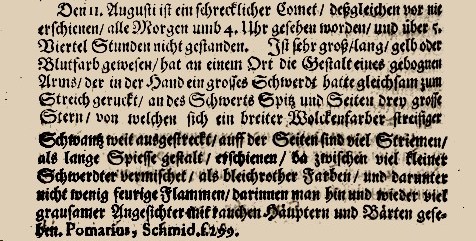 Den 11. Augusti ist ein schrecklicher Comet / deßgleichen vor nie
erschienen / alle Morgen umb 4. Uhr gesehen worden / und über 5.
Viertel Stunden nicht gestanden. Ist sehr groß / lang / gelb oder
Blutfarb gewesen / hat an einem Ort die Gestalt eines gebognen
Arms / der in der Hand ein grosses Schwerdt hatte gleichsam zum
Streich geruckt / an des Schwerts Spitz und Seiten drey grosse
Stern / von welchen sich ein breiter Wolckenfarber streiffiger
Schwantz weit ausgestreckt / auff der Seiten sind viel Striemen /
als lange Spiesse gestalt / erschienen / da zwischen viel kleiner
Schwerdter vermischet / als bleichrother Farben / und darunter
nicht wenig feurige Flammen / darinnen man hin und wieder viel
grausamer Angesichter mit rauchen Häuptern und Bärten gese-
hen. Pomarius, Schmid. f. 289.